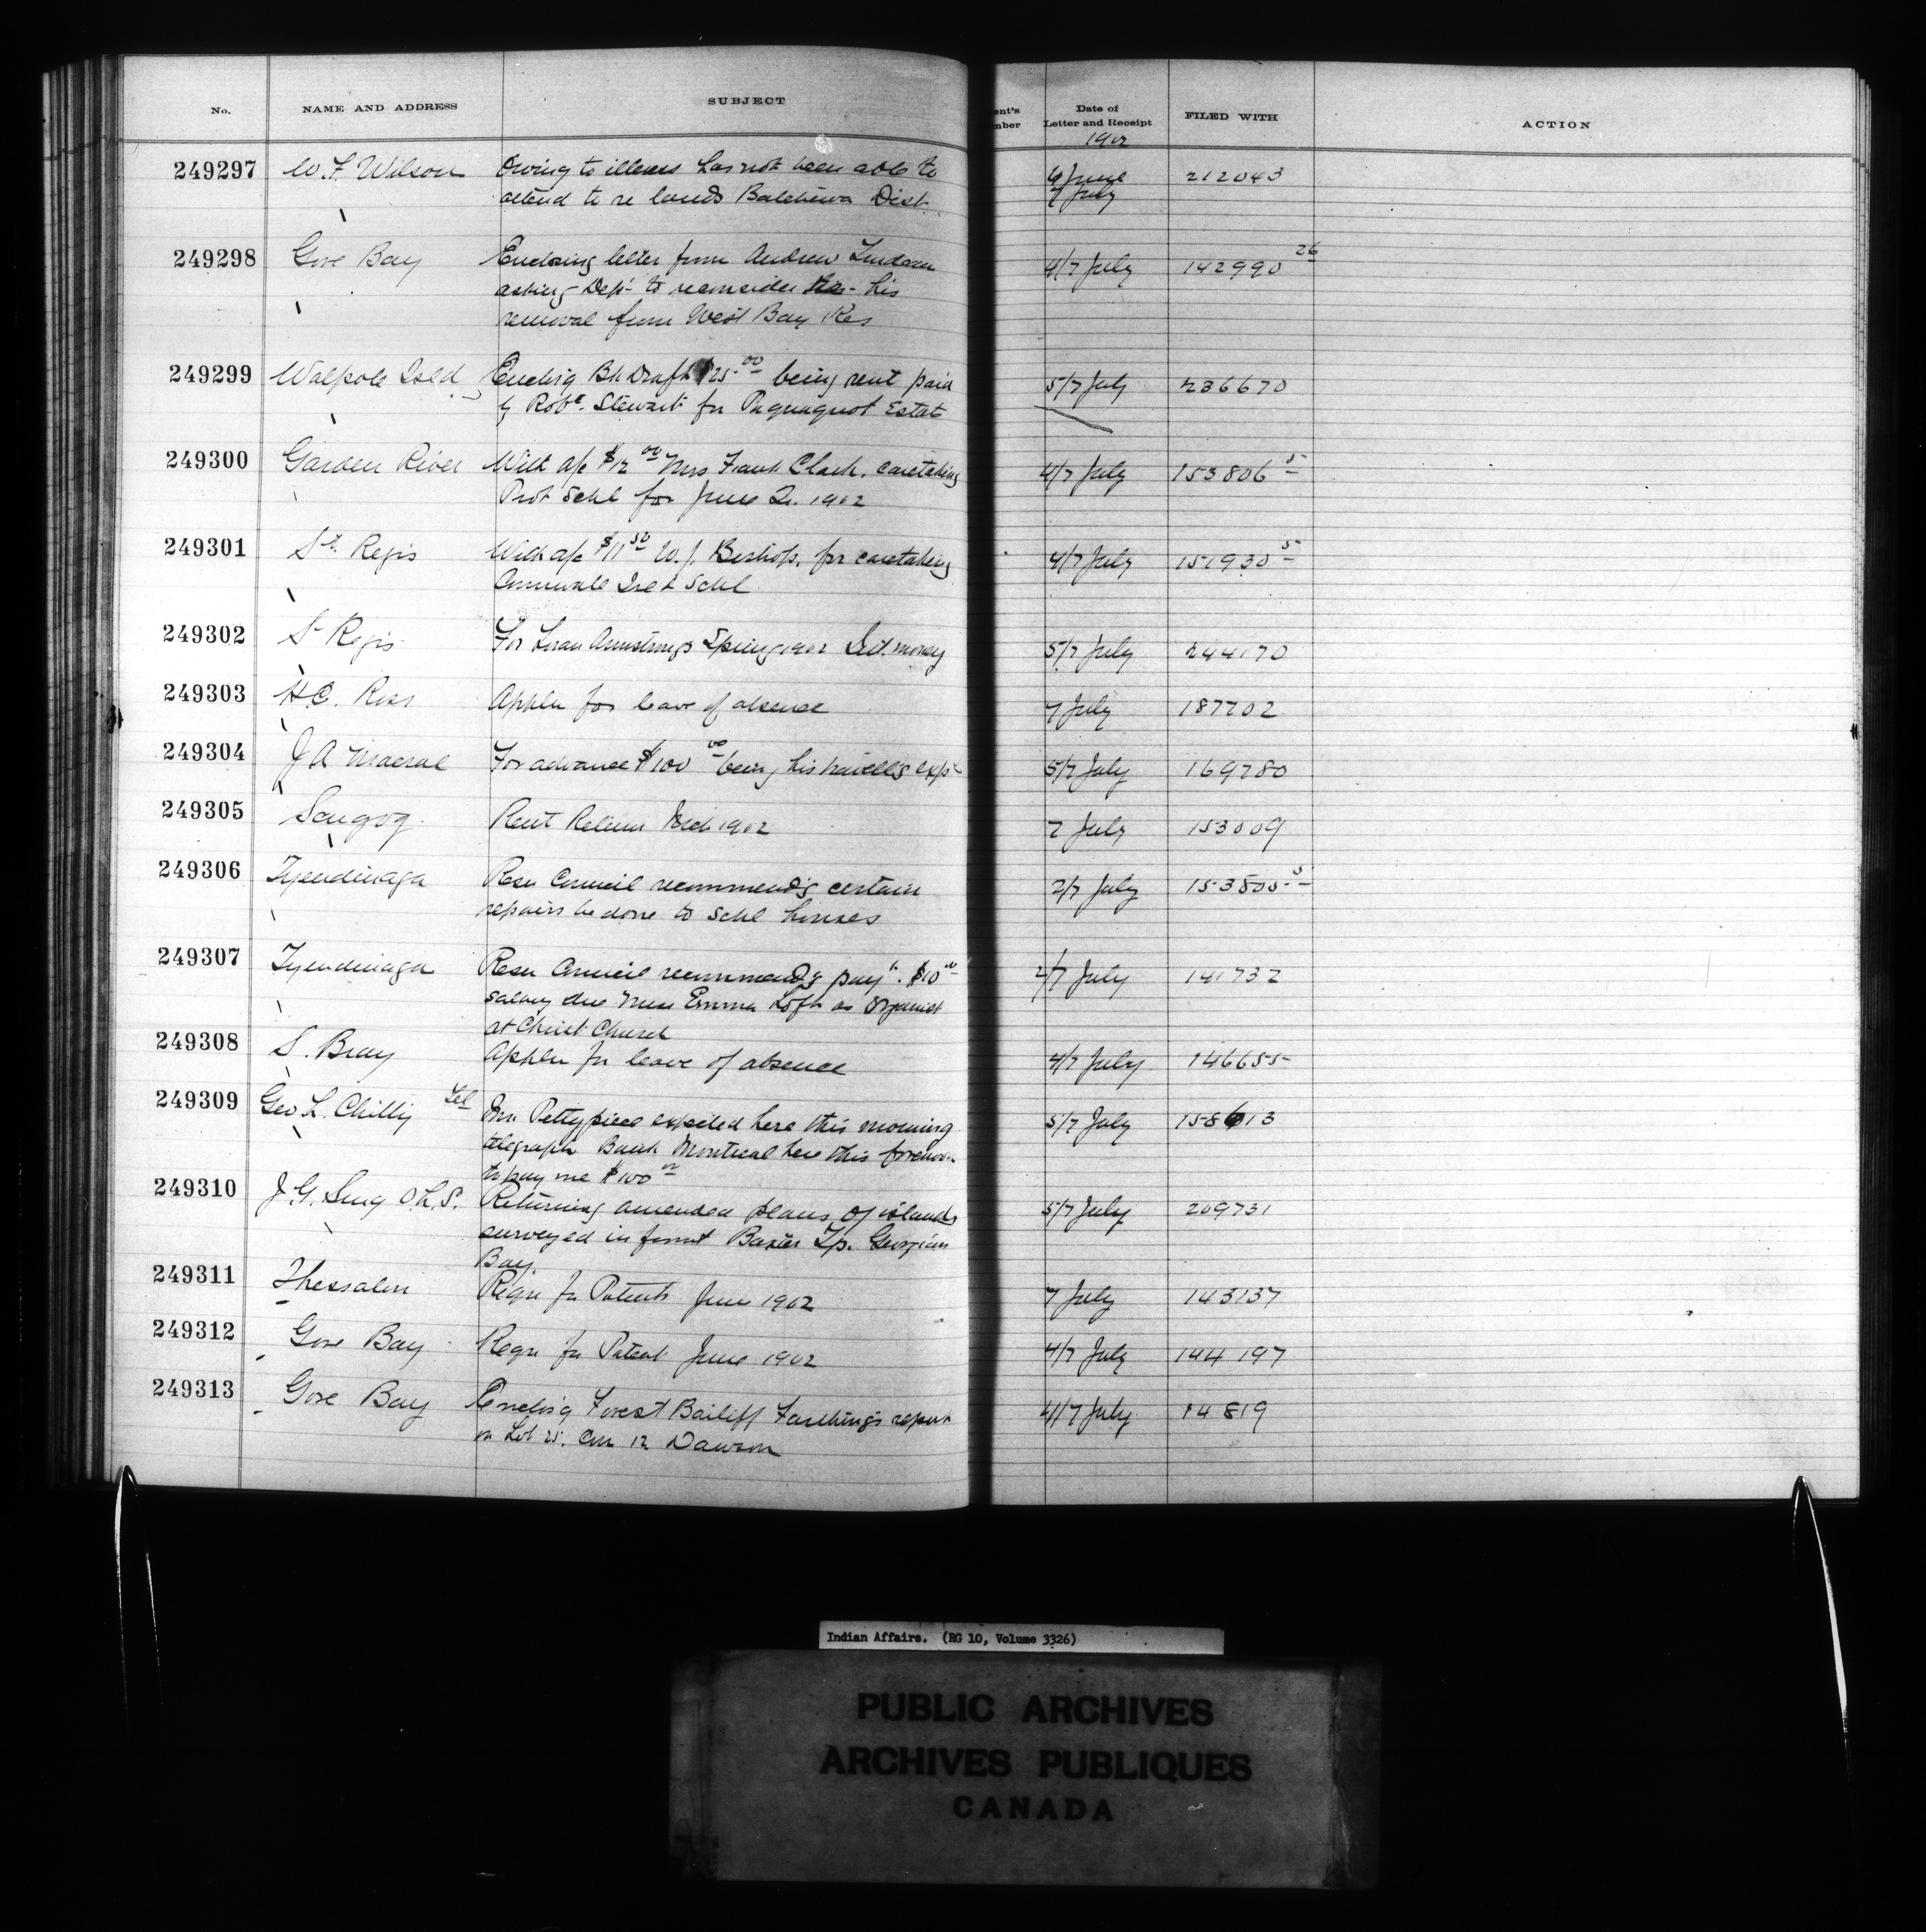 No. NAME AND ADDRESS SUBJECT ent's nber Date of Letter and Receipt FILED WITH ACTION
1902
249297 W. F. Wilson Owing to illness has not been able to 6 June 212043
attend to re lands Batchewa Dist 7 July
249298 Gore Bay Enclosing letter from Andrew 4/7 July 142990 26
asking Dept to reconsider his
removal from West Bay Res
249299 Walpole Isld Enclosig Bk Draft $25.00 being rent paid 5/7 July 236670
by Robt. Stewart for Estate
249300 Garden River With a/c $12 00 Mrs Frank Clark, caretaking 4/7 July 153806 5
Prot Schl for June Qr. 1902
249301 St. Regis With a/c $11 50 W. J. Bishop, for caretaking 4/7 July 151930 5
Cornwall Isld Schl
249302 St Regis For Loran Armstrongs Spring 1902 Int. money 5/7 July 244170
249303 H. C. Ross Appln for leave of absence 7 July 187702
249304 J A Macrae For advance $100 00 being his travellg exps 5/7 July 169780
249305 Scugog Rent Return Mch 1902 7 July 153009
249306 Tyendinaga Resn Council recommendg certain 2/7 July 153805 5
repairs be done to Schl houses
249307 Tyendinaga Resn Council recommendg payt. $10 00 2/7 July 141732
salary due Miss Emma Loft as Organist
at Christ Church
249308 S. Bray Appln for leave of absence 4/7 July 146655
249309 Geo L. Chitty Tel Mr. Pettypiece expected here this morning 5/7 July 158613
telegraph Bank Montreal here this forenoon
to pay me $100 00
249310 J. G. Sing O.L.S. Returning amended plans of islands 5/7 July 209731
surveyed in front Baxter Tp. Georgian
Bay.
249311 Thessalon Regn for Patents June 1902 7 July 143137
249312 Gore Bay Regn for Patent June 1902 4/7 July 144197
249313 Gore Bay Enclosig Forest Bailiff Farthing's report 4/7 July 14819
on Lot 25. Con 12 Dawson
Indian Affairs. (RG 10, Volume 3326)
PUBLIC ARCHIVES
ARCHIVES PUBLIQUES
CANADA